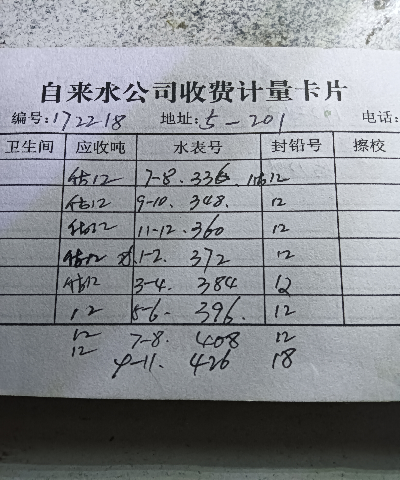 自来水公司收费计量卡片
编号:172218 地址:5-201 电话:
卫生间 应收吨 水表号 封铅号 擦校
估12 7-8. 336. 估12
估12 9-10. 348. 12
估12 11-12. 360 12
估12 1-2. 372 12
估12 3-4. 384 12
12 5-6. 396. 12
12 7-8. 408 12
12 9-11. 426 18